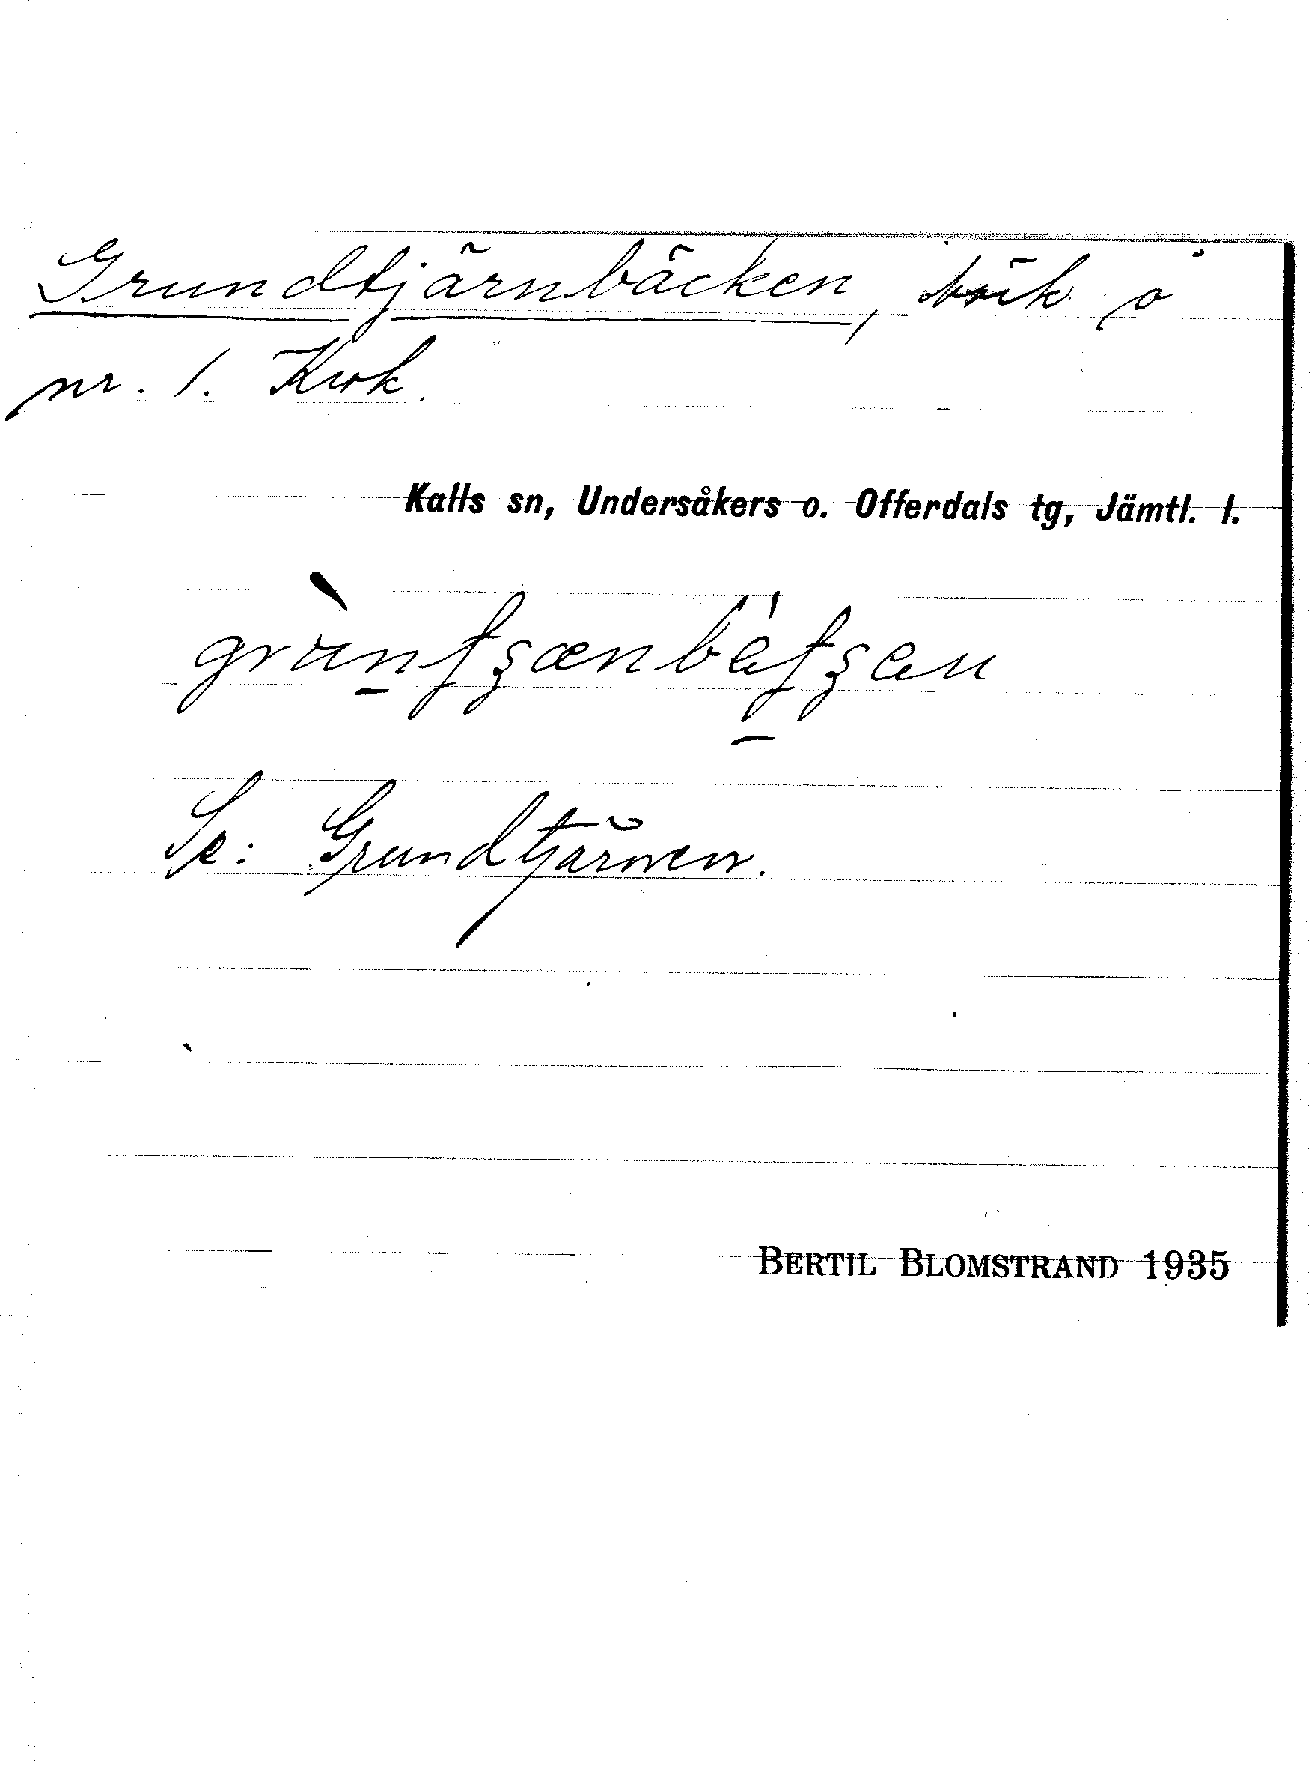 Grundtjärnbäcken, bäck å
nr. 1. Krok.
Kalls sn, Undersåkers o. Offerdals tg, Jämtl. l.
Se: Grundtjärnen.
BERTIL BLOMSTRAND 1935